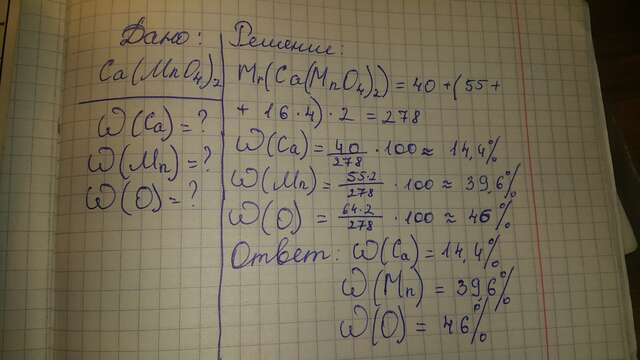 Дано:
Ca(MnO4)2
ω(Ca) = ?
ω(Mn) = ?
ω(O) = ?
Решение:
Mr(Ca(MnO4)2) = 40 + (55 +
+ 16 · 4) · 2 = 278
ω(Ca) = 40/278 · 100 ≈ 14,4%
ω(Mn) = 55·2/278 · 100 ≈ 39,6%
ω(O) = 64·2/278 · 100 ≈ 46%
Ответ: ω(Ca) = 14,4%
ω(Mn) = 39,6%
ω(O) = 46%